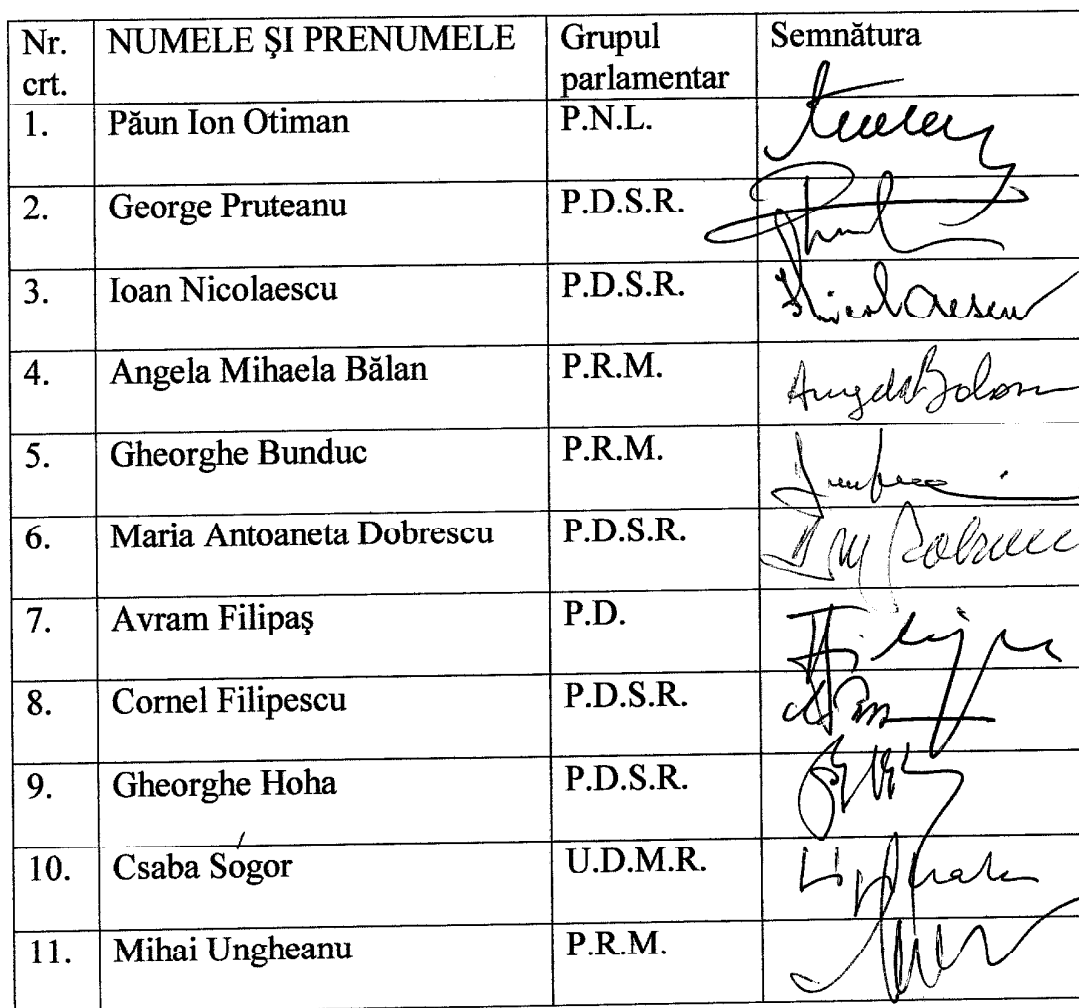 Nr. crt. NUMELE ŞI PRENUMELE Grupul parlamentar Semnătura
1. Păun Ion Otiman P.N.L.
2. George Pruteanu P.D.S.R.
3. Ioan Nicolaescu P.D.S.R. Nicolaescu
4. Angela Mihaela Bălan P.R.M. Angela Bălan
5. Gheorghe Bunduc P.R.M.
6. Maria Antoaneta Dobrescu P.D.S.R.
7. Avram Filipaş P.D.
8. Cornel Filipescu P.D.S.R.
9. Gheorghe Hoha P.D.S.R.
10. Csaba Sógor U.D.M.R.
11. Mihai Ungheanu P.R.M.